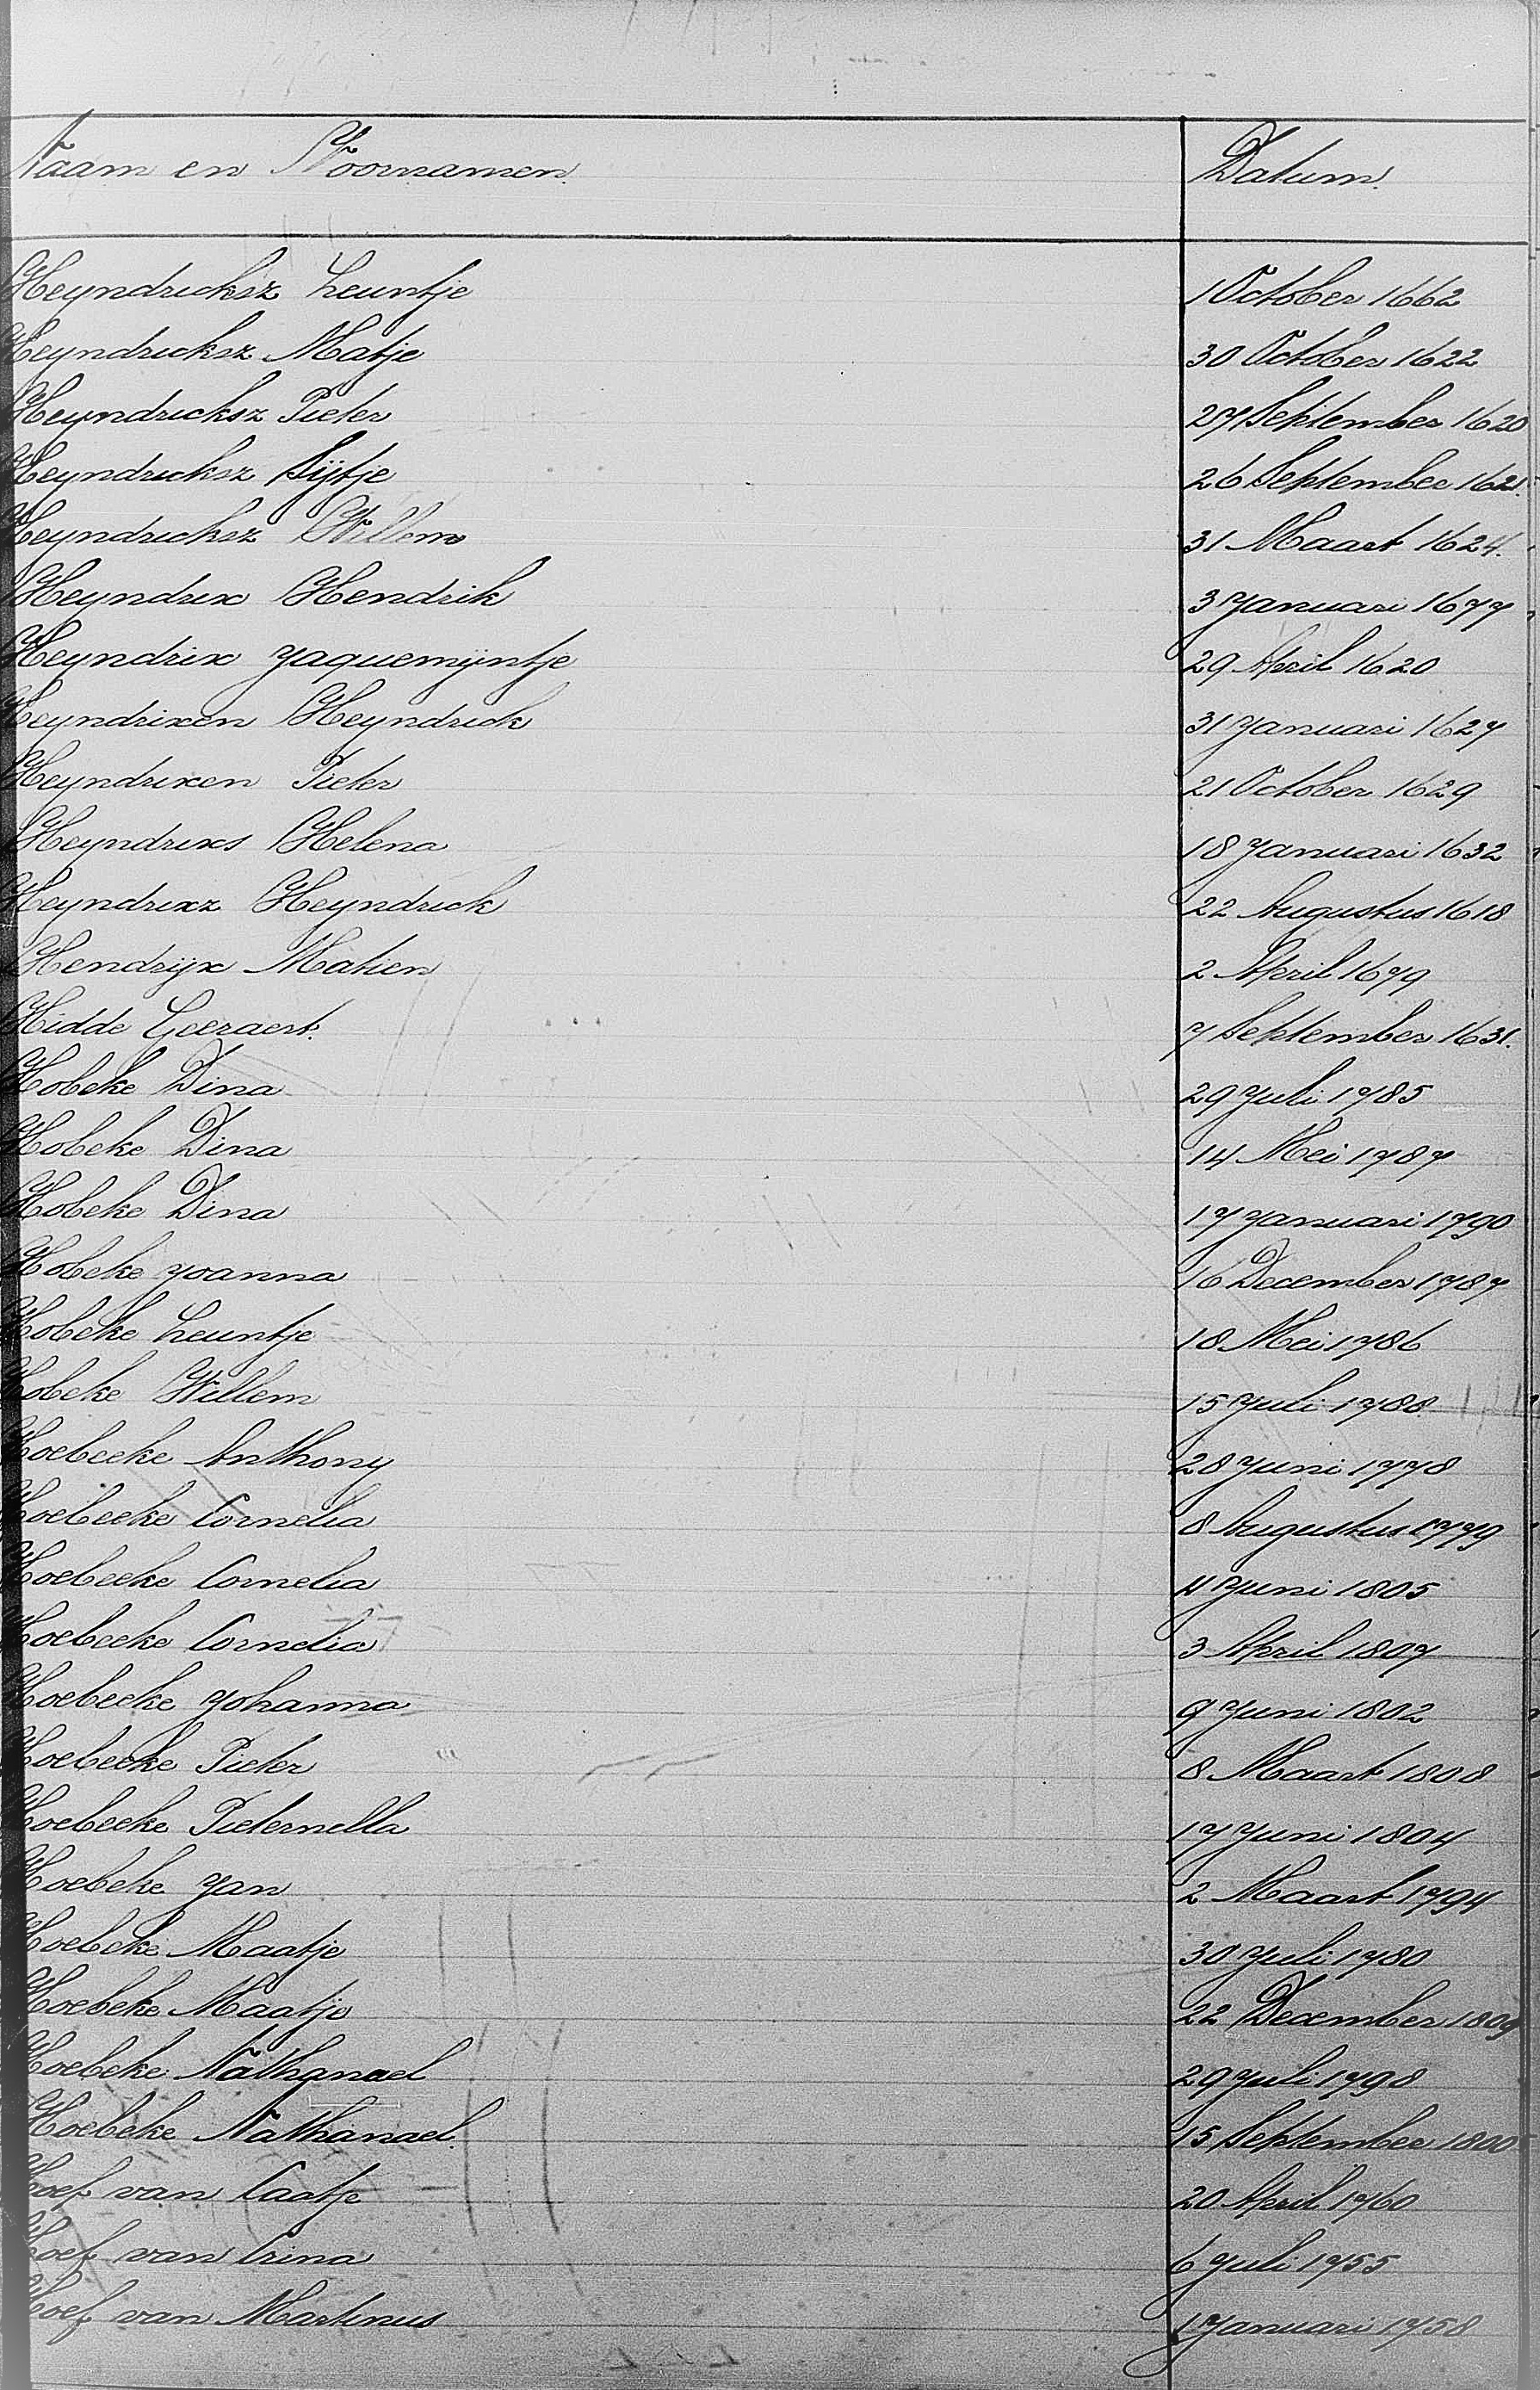 Naam en Voornamen. Datum.
Heyndricksz Leuntje 1 October 1662
Heyndricksz Matje 30 October 1622
Heyndricksz Pieter 27 September 1620
Heyndricksz Sijtje 26 September 1621.
Heyndricksz Willem 31 Maart 1624.
Heyndrix Hendrik 3 Januari 1677
Heyndrix Jaquemijntje 29 April 1620
Heyndrixen Heyndrick 31 Januari 1627
Heyndrixen Pieter 21 October 1629
Heyndrixs Helena 18 Januari 1632
Heyndrixz Heyndrick 22 Augustus 1618
Hendrijx Matien 2 April 1679
Hidde Geeraert. 7 September 1631.
Hobeke Dina 29 Juli 1785
Hobeke Dina 14 Mei 1787
Hobeke Dina 17 Januari 1790
Hobeke Joanna 16 December 1787
Hobeke Leuntje 18 Mei 1786
Hobeke Willem 15 Juli 1788
Hoebeeke Anthony 28 Juni 1778
Hoebeeke Cornelia 8 Augustus 1779
Hoebeeke Cornelia Juni 1805
Hoebeeke Cornelia 3 April 1807
Hoebeeke Johanna 9 Juni 1802
Hoebeeke Pieter 8 Maart 1808
Hoebeeke Pieternella 17 Juni 1804
Hoebeke Jan 2 Maart 1794
Hoebeke Maatje 30 Juli 1780
Hoebeke Maatje 22 December 1809
Hoebeke Nathanael 29 Juli 1798
Hoebeke Nathanael. 15 September 1800
Hoef van Caatje 20 April 1760
Hoef van Crina 6 Juli 1755
Hoef van Martinus 1 Januari 1758